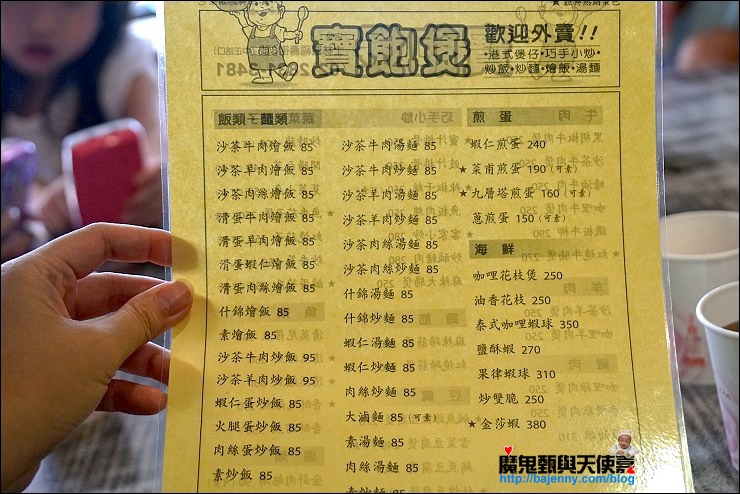 寶飽煲
歡迎外賣!!
·港式煲仔·巧手小炒·
炒飯·炒麵·燴飯·湯麵
飯類-麵類
沙茶牛肉燴飯 85
沙茶羊肉燴飯 85
沙茶肉絲燴飯 85
滑蛋牛肉燴飯 85
滑蛋羊肉燴飯 85
滑蛋蝦仁燴飯 85
滑蛋肉絲燴飯 85
什錦燴飯 85
素燴飯 85
沙茶牛肉炒飯 95
沙茶羊肉炒飯 95
蝦仁蛋炒飯 85
火腿蛋炒飯 85
肉絲蛋炒飯 85
素炒飯 85
沙茶牛肉湯麵 85
沙茶牛肉炒麵 85
沙茶羊肉湯麵 85
沙茶羊肉炒麵 85
沙茶肉絲湯麵 85
沙茶肉絲炒麵 85
什錦湯麵 85
什錦炒麵 85
蝦仁湯麵 85
蝦仁炒麵 85
肉絲炒麵 85
大滷麵 85 (可素)
素湯麵 85
肉絲湯麵 85
素炒麵 85
煎蛋
蝦仁煎蛋 240
★菜甫煎蛋 190 (可素)
★九層塔煎蛋 160 (可素)
蔥煎蛋 150 (可素)
海鮮
咖哩花枝煲 250
油香花枝 250
泰式咖哩蝦球 350
鹽酥蝦 270
果律蝦球 310
炒雙脆 250
★金莎蝦 380
魔鬼甄與天使嘉
http://bajenny.com/blog